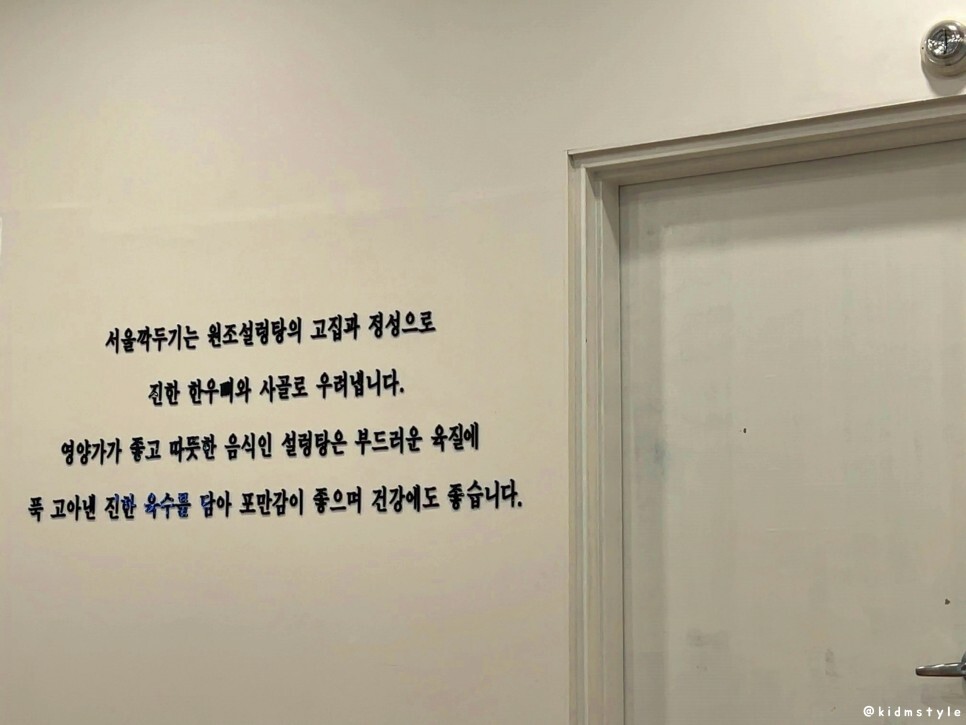 서울깍두기는 원조설렁탕의 고집과 정성으로
진한 한우뼈와 사골로 우려냅니다.
영양가가 좋고 따뜻한 음식인 설렁탕은 부드러운 육질에
푹 고아낸 진한 육수를 담아 포만감이 좋으며 건강에도 좋습니다.
@kidmstyle